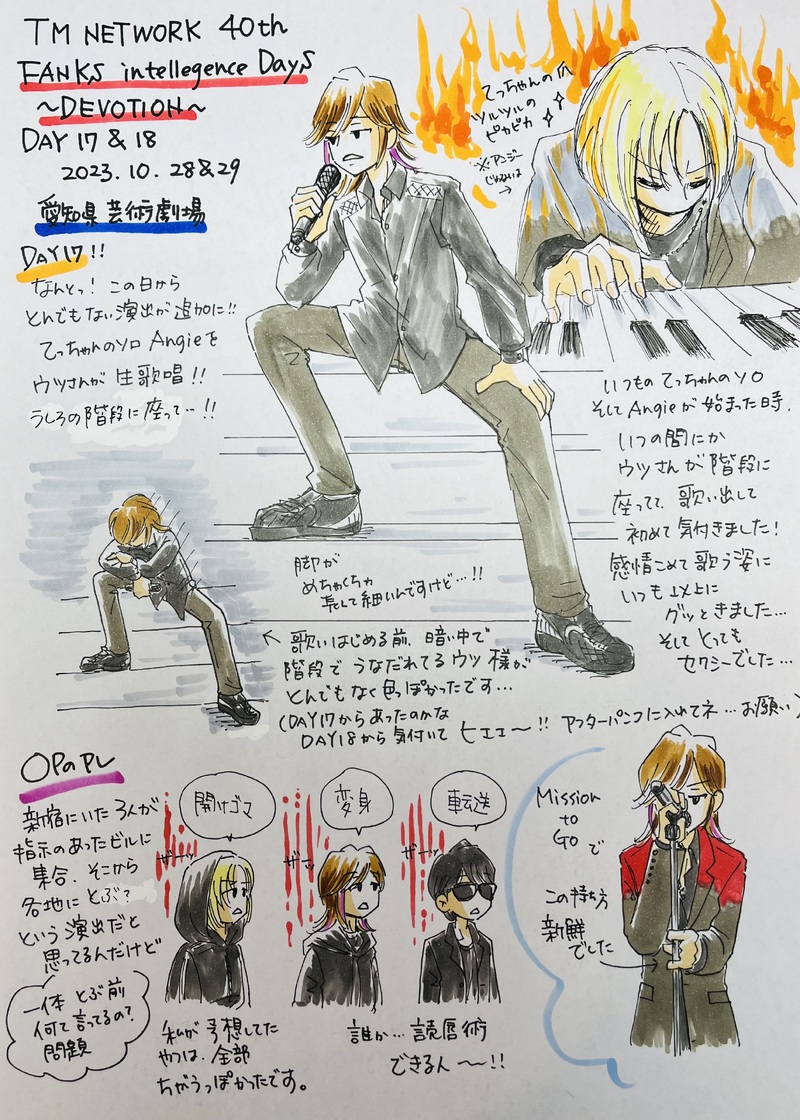 TM NETWORK 40th
FANKS intellegence Days
~DEVOTION~
DAY 17 & 18
2023.10.28&29
愛知県 芸術劇場
DAY17!!
なんとっ! この日から
とんでもない演出が追加に!!
てっちゃんのソロ Angieを
ウツさんが 生歌唱!!
うしろの階段に座って…!!
てっちゃんの爪
ツルツルの
ピカピカ
※アンジー
じゃないは
→
いつもの てっちゃんのソロ
そして Angieが 始まった時、
いつの間にか
ウツさんが 階段に
座ってて 歌い出して
初めて 気付きました!
感情こめて 歌う姿に
いつも以上に
グッときました…
そして とっても
セクシーでした…
脚が
めちゃくちゃ
長くて細いんですけど…!!
← 歌いはじめる前、暗い中で
階段で うなだれてる ウツ様が
とんでもなく色っぽかったです…
(DAY17からあったのかな
DAY18から気付いて ヒエエ~!! アフターパンフに入れてネ…お願い)
OPのアレ
新宿にいた3人が
指示のあったビルに
集合、そこから
各地に とぶ?
という 演出だと
思ってるんだけど
一体 とぶ前
何て言ってるの?
問題
開けゴマ
変身
転送
ザーッ
ザーッ
ザーッ
私が予想してた
やつは、全部
ちがうっぽかったです。
誰か… 読唇術
できるん~!!
Mission
to
Go で
この持ち方
新鮮
でした